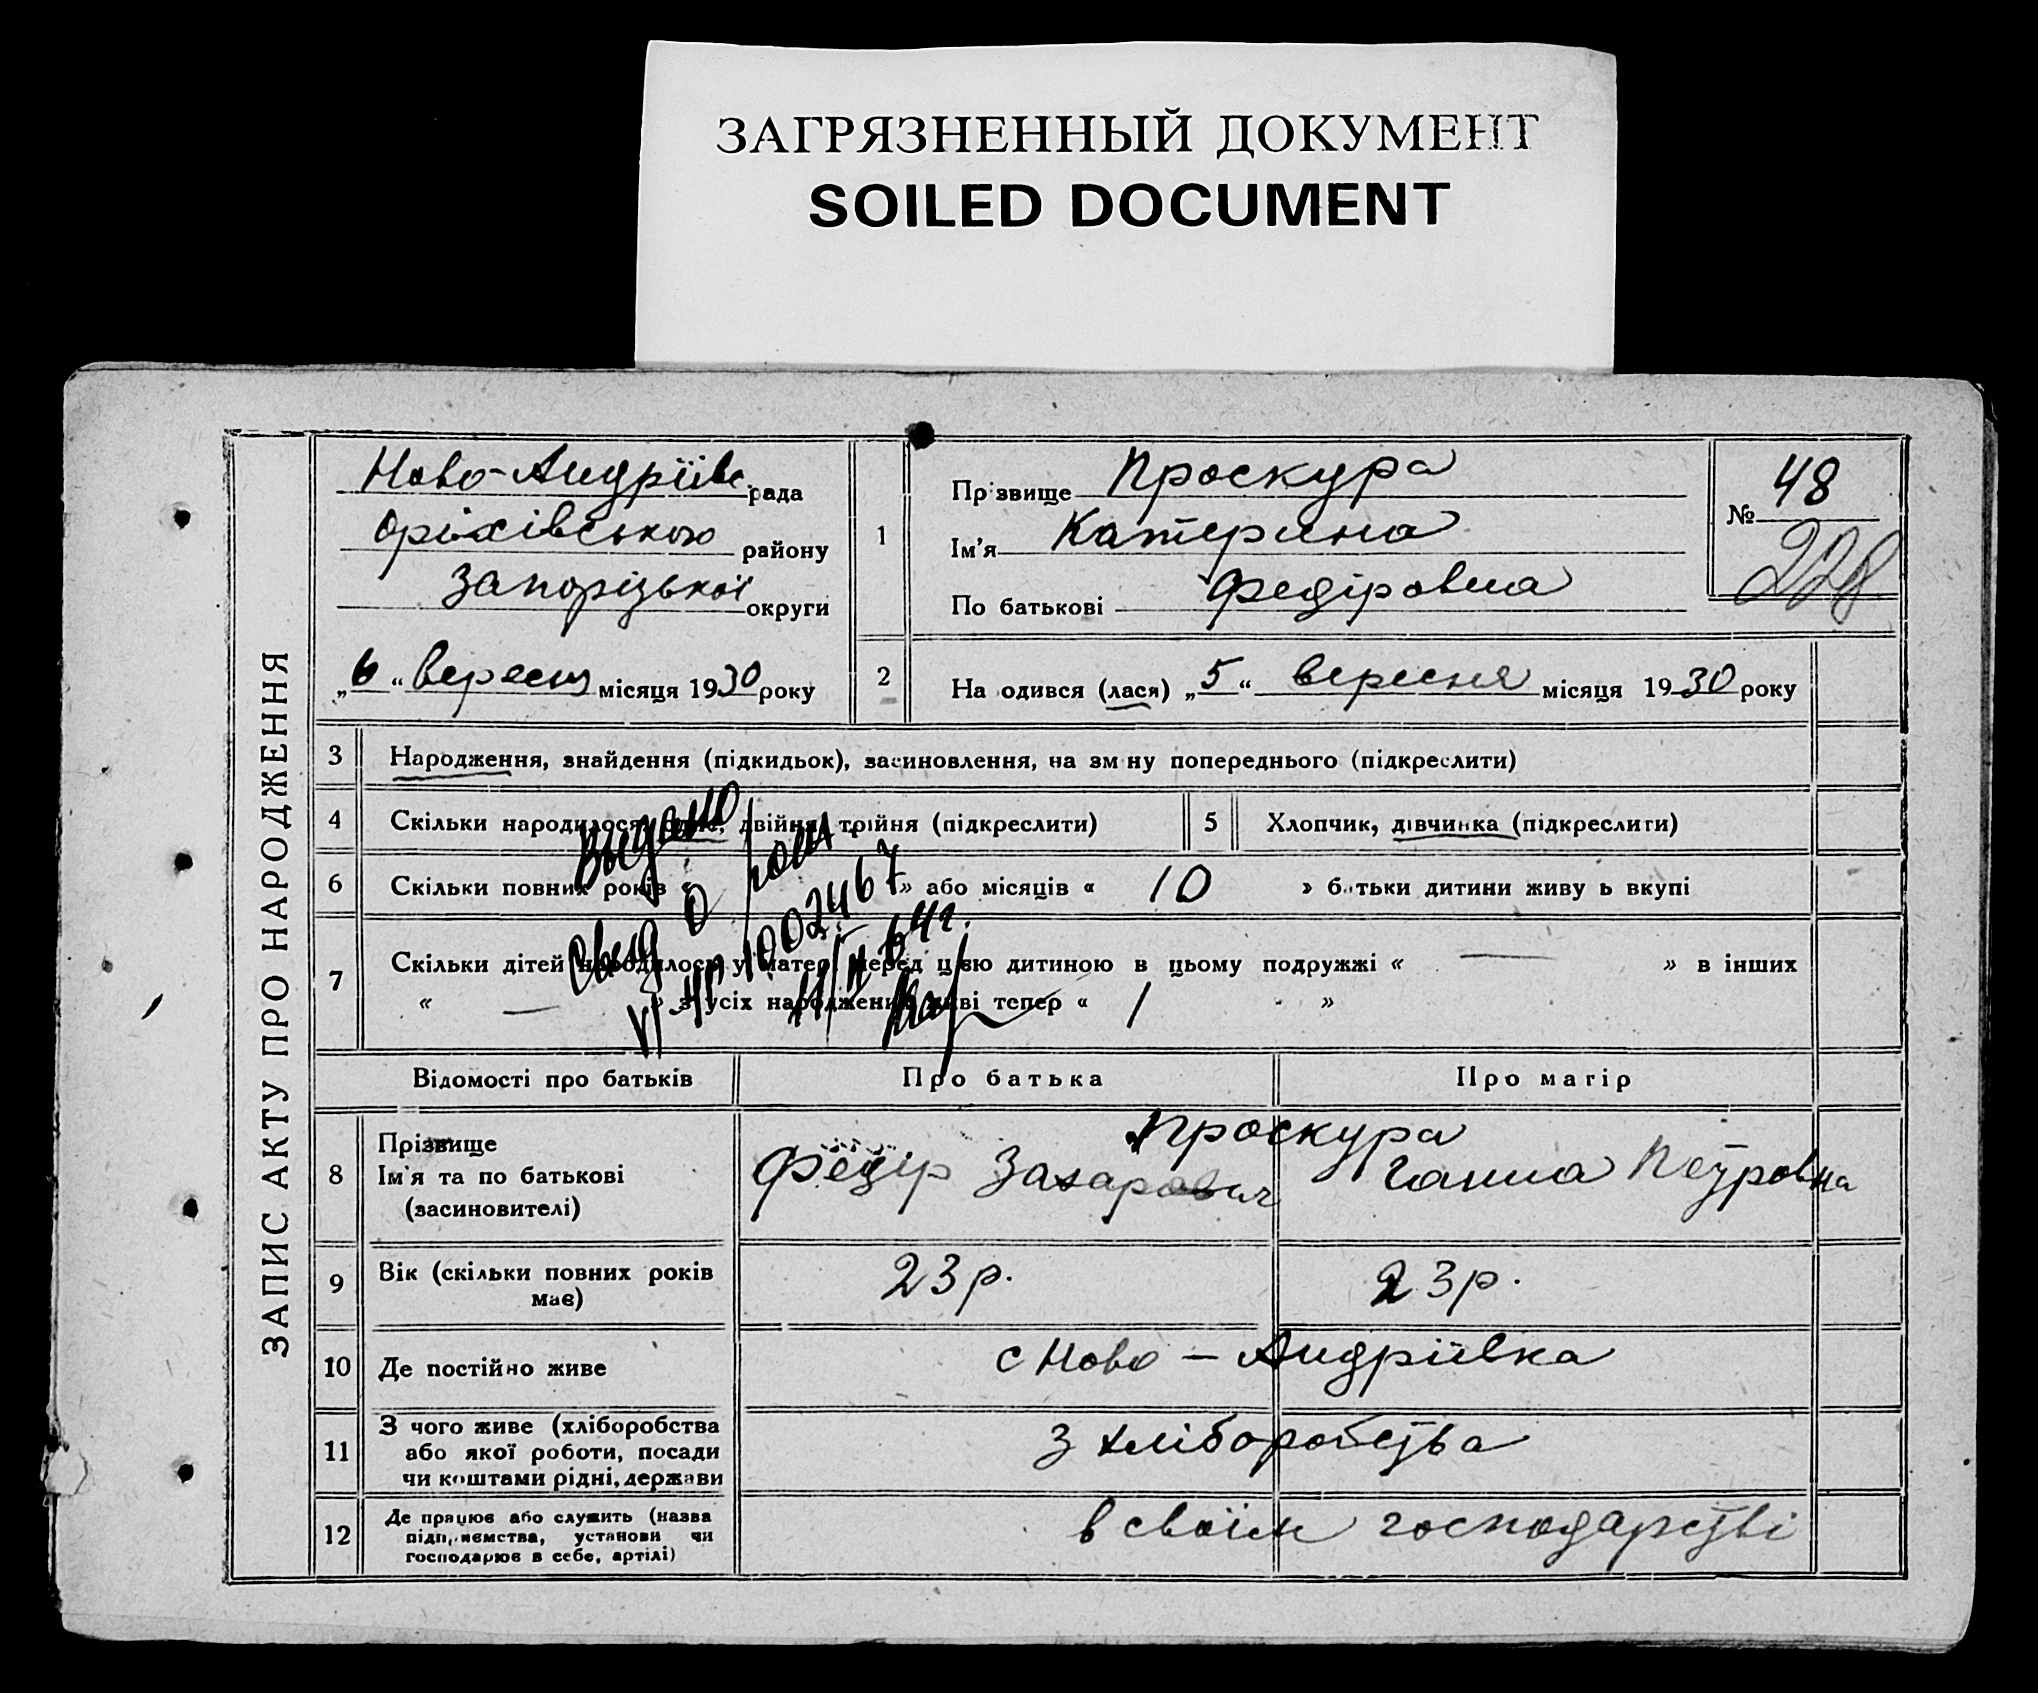 ЗАГРЯЗНЕННЫЙ ДОКУМЕНТ
SOILED DOCUMENT
ЗАПИС АКТУ ПРО НАРОДЖЕННЯ
Ново-Андріївс. рада
Оріхівського району
Запорізької округи
„6“ вересня місяця 1930 року
1
Прізвище Проскура
Ім'я Катерина
По батькові Федіровна
№ 48
228
2
На одився (лася) „5“ вересня місяця 1930 року
3 Народження, знайдення (підкидьок), засиновлення, на зм ну попереднього (підкреслити)
4 Скільки народилося: одне, двійня, трійня (підкреслити)
5 Хлопчик, дівчинка (підкреслити)
6 Скільки повних років « » або місяців « 10 » батьки дитини живу ь вкупі
7 Скільки дітей народилося у матері перед цією дитиною в цьому подружжі « — » в інших
« — » з усіх народжених живі тепер « 1 »
Выдано
свид о рожд.
1002467
11/II 64г.
Відомості про батьків
Про батька
Про матір
8 Прізвище
Ім'я та по батькові
(засиновителі)
Проскура
Федір Захарович
Ганна Петровна
9 Вік (скільки повних років
має)
23 р.
23 р.
10 Де постійно живе
с Ново - Андріївка
11 З чого живе (хліборобства
або якої роботи, посади
чи коштами рідні, держави
З хліборобства
12 Де працює або служить (назва
підп,иємства, установи чи
господарює в себе, артілі)
в своїм господарстві